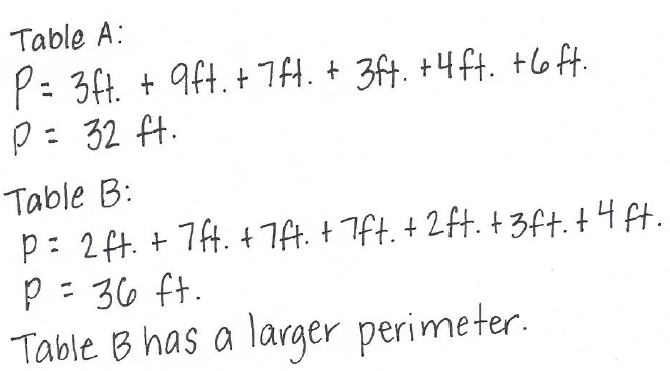 Table A:
P = 3ft. + 9ft. + 7ft. + 3ft. + 4ft. + 6ft.
P = 32 ft.
Table B:
P = 2ft. + 7ft. + 7ft. + 7ft. + 2ft. + 3ft. + 4ft.
P = 36 ft.
Table B has a larger perimeter.